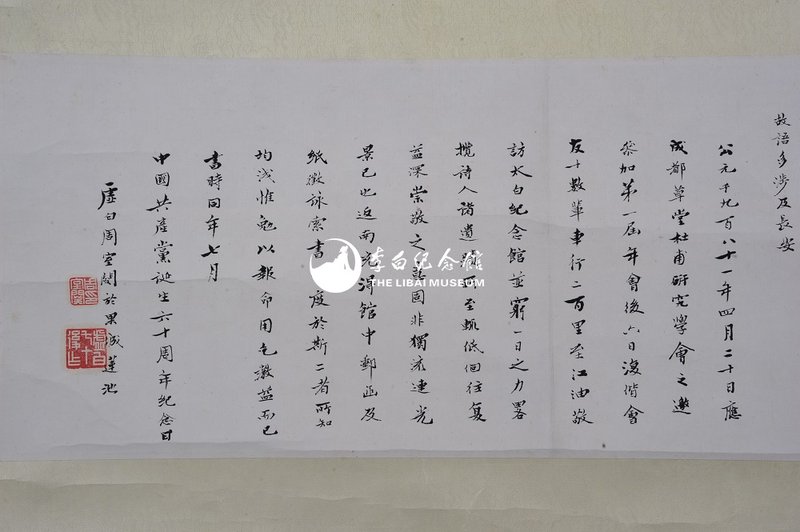 故語多涉及長安
公元千九百八十一年四月二十日應
成都草堂杜甫研究學會之邀
參加第一屆年會後六日復偕會
友十數輩車行二百里至江油敬
訪太白紀念館並窮一日之力畧
攬詩人諸遺蹟所至輒低個往復
益深崇敬之 固非獨流連光
景已也返南充得館中郵函及
紙徵詠索書 度於斯二者所知
均淺惟勉以報命用乞教益而已
書時同年七月
中國共產黨誕生六十周年紀念日
虛白周 於果城蓮池
李白纪念馆
THE LIBAI MUSEUM